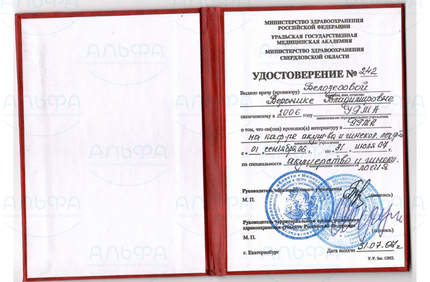 АЛЬФА
МИНИСТЕРСТВО ЗДРАВООХРАНЕНИЯ
РОССИЙСКОЙ ФЕДЕРАЦИИ
УРАЛЬСКАЯ ГОСУДАРСТВЕННАЯ
МЕДИЦИНСКАЯ АКАДЕМИЯ
МИНИСТЕРСТВО ЗДРАВООХРАНЕНИЯ
СВЕРДЛОВСКОЙ ОБЛАСТИ
УДОСТОВЕРЕНИЕ № 242
Выдано врачу (провизору) Белозеровой
Веронике Владимировне
окончившему в 2006 году УГМА
о том, что он(она) прошел(а) интернатуру в УГМА
на кафедре акуш-ва и гинекол.
с 01 сентября 06 г. по 31 июля 07 г.
по специальности акушерство и гинекология
Руководитель образовательного учреждения
М. П. (подпись)
Руководитель территориального органа управления
здравоохранением субъекта Российской Федерации
М. П.
г. Екатеринбург Дата выдачи 31.07.07 г